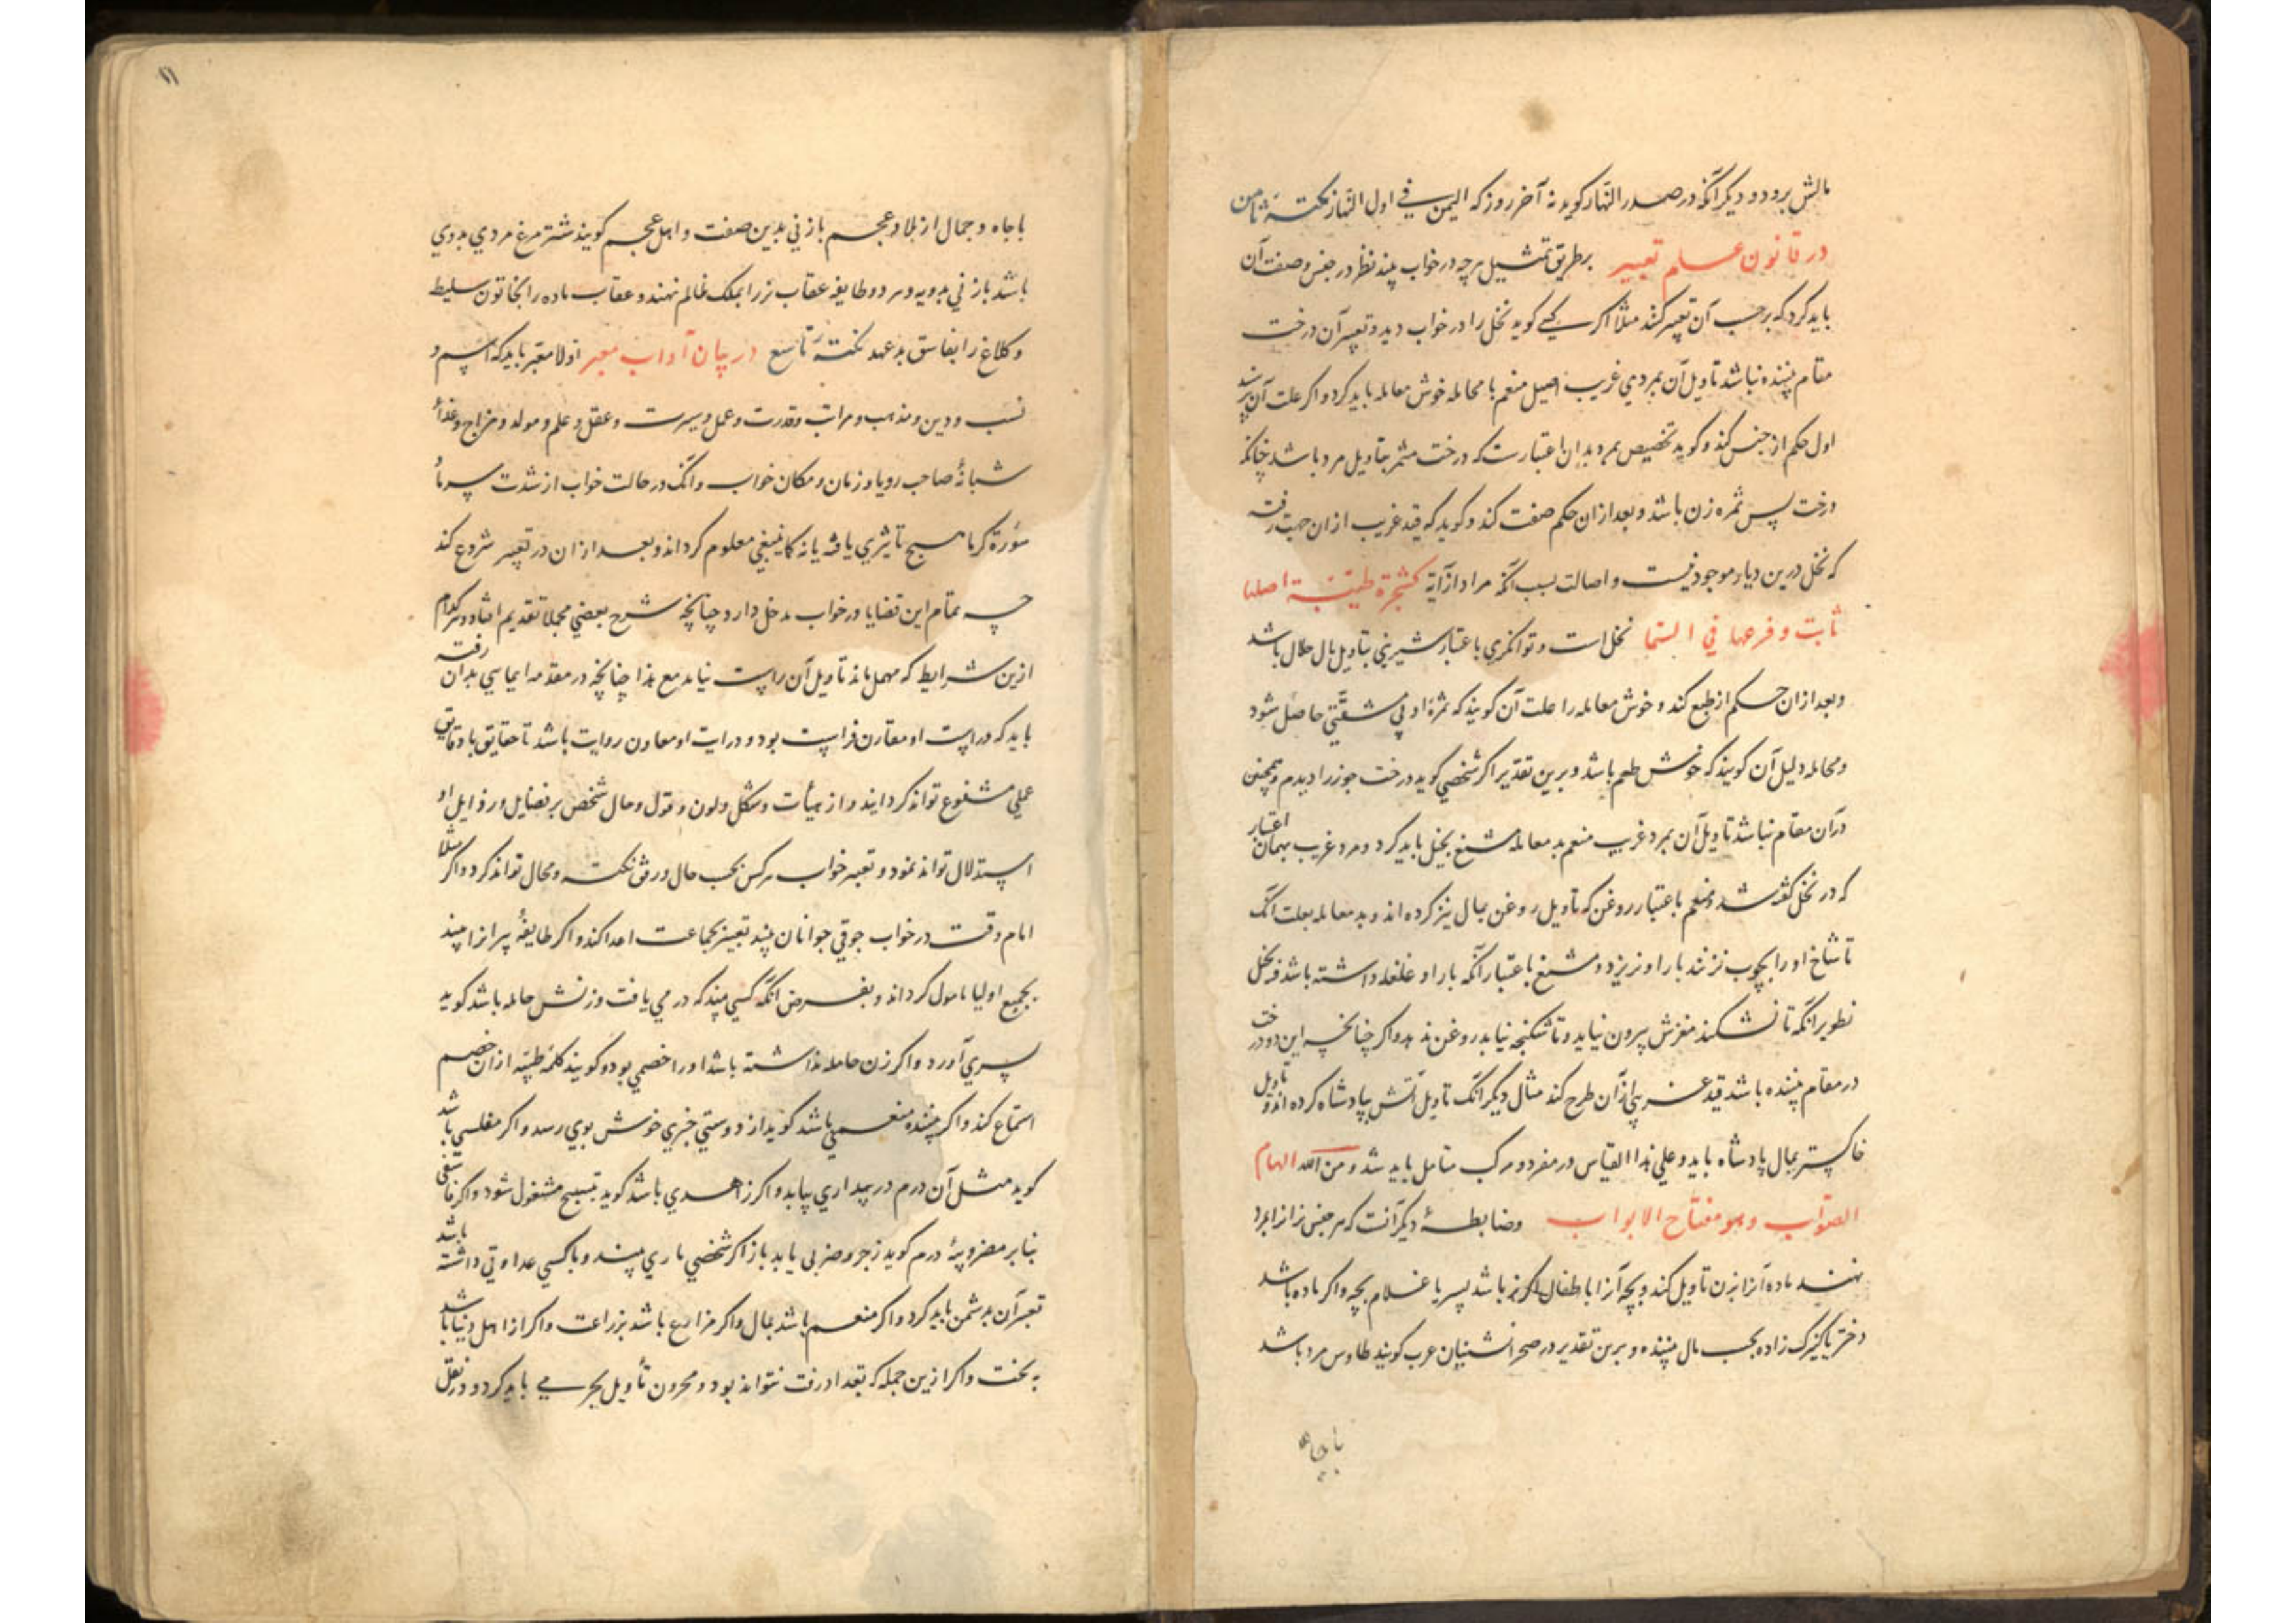 مالش برود و دیگر آنکه در صدر النّهار گوید نه آخر روز که الیمن فی اول النّهار نکتهٔ ثامن
در قانون علم تعبیر برطریق تمثیل هرچه در خواب بیند نظر در جنس و صفت آن
باید کرد که برحسب آن تعبیر کنند مثلا اگر کسی گوید نخل را در خواب دید و تعبیر آن درخت
مقام بیننده نباشد تاویل آن بمردی غریب اصیل منعم با محامله خوش معامله باید کرد و اگر علت آن پرسند
اول حکم از جنس کند و گوید تخصیص بمرد بدان اعتبارست که درخت مثمر بتاویل مرد باشد چنانکه
درخت پس ثمره زن باشد و بعد ازان حکم صفت کند و گوید که قید غریب ازان جهت رفته
که نخل درین دیار موجود نیست و اصالت بسبب آنکه مراد از آیة کشجرة طیّبة اصلها
ثابت و فرعها فی السّما نخل است و توانگری باعتبار شیرینی بتاویل مال حلال باشد
و بعد ازان حکم از طبع کند و خوش معامله را علت آن گویند که ثمرهٔ او بی مشقّتی حاصل شود
و محامله دلیل آن گویند که خوش طعم باشد و برین تقدیر اگر شخصی گوید درخت جوز را دیدم و همچنین
در آن مقام نباشد تاویل آن بمرد غریب منعم بد معامله مشنع بخیل باید کرد و مرد غریب بهمان اعتبار
که در نخل گفته شد و منعم باعتبار روغن که تاویل روغن بمال نیز کرده اند و بد معامله بعلت آنک
تا شاخ او را بچوب نزنند بار او نریزد و مشنع باعتبار آنکه بار او غلغله داشته باشد و بخل
نظر برانکه تا نشکند مغزش بیرون نیاید و تا شکنجه نیابد روغن ندهد و اگر چنانچه این دو درخت
در مقام بیننده باشد قید غریبی ازان طرح کند مثال دیگر آنک تاویل آتش بپادشاه کرده اند و تاویل
خاکستر بمال پادشاه باید و علی هذا القیاس در مفرد و مرکب متامل باید شد و من الله الهام
الصّواب و هو مفتاح الابواب و ضابطهٔ دیگر آنست که هر جنس نر از امرد
نهند ماده آنرا بزن تاویل کند و بچه آنرا باطفال اگر نر باشد پسر یا غلام بچه و اگر ماده باشد
دختر یا کنیزک زاده بحسب مال بیننده و برین تقدیر در صحرا نشینان عرب گویند طاوس مرد باشد
با جاه
۱۱
با جاه و جمال از بلاد عجم با زنی بدین صفت و اهل عجم گویند شترمرغ مردی بدوی
باشد با زنی بدویه و هر دو طایفه عقاب نر را بملک ظالم نهند و عقاب ماده را بخاتون سلیطه
و کلاغ را بفاسق بدعهد نکتهٔ تاسع در بیان آداب معبر اولا معبّر باید که اسم و
نسب و دین و مذهب و مراتب و قدرت و عمل و سیرت و عقل و علم و مولد و مزاج و غذاء
شبانهٔ صاحب رویا و زمان و مکان خواب و آنک در حالت خواب از شدت سرما
سورة گرما هیچ تاثیری یافته یا نه کما ینبغی معلوم گرداند و بعد ازان در تعبیر شروع کند
چه تمام این قضایا در خواب مدخل دارد چنانچه شرح بعضی مجملا تقدیم افتاد و هرکدام
ازین شرایط که مهمل ماند تاویل آن راست نیاید مع هذا چنانچه در مقدمه ایمایی بدان رفته
باید که دراست او مقارن فراست بود و درایت او معاون روایت باشد تا حقایق با دقایق
عملی مشفوع تواند گردانید و از هیأت و شکل و لون و قول و حال شخص بر فضایل و رذایل او
استدلال تواند نمود و تعبیر خواب هرکس بحسب حال و رفق نکته و محال تواند کرد و اگر مثلا
امام وقت در خواب جوقی جوانان بیند تعبیر بجماعت اعدا کند و اگر طایفهٔ پیرانرا بیند
بجمیع اولیا مامول گرداند و بفرض آنکه کسی بیند که درمی یافت و زنش حامله باشد گوید
پسری آورد و اگر زن حامله نداشته باشد او را خصمی بود و گویند کلمهٔ طیّبه ازان خصم
استماع کند و اگر بیننده منعمی باشد گوید از دوستی خبری خوش بوی رسد و اگر مفلسی باشد
گوید مثل آن درم در بیداری بیابد و اگر زاهدی باشد گوید بتسبیح مشغول شود و اگر فاسقی
بنابر مضروبیهٔ درم گوید زجر و ضربی یابد باز اگر شخصی ماری بیند و با کسی عداوتی داشته باشد
تعبیر آن بدشمن باید کرد و اگر منعم باشد بمال و اگر مزارع باشد بزراعت و اگر از اهل دنیا باشد
به بخت و اگر ازین جمله که تعداد رفت نتواند بود و محرون تأویل بحر می باید کرد و در نقل